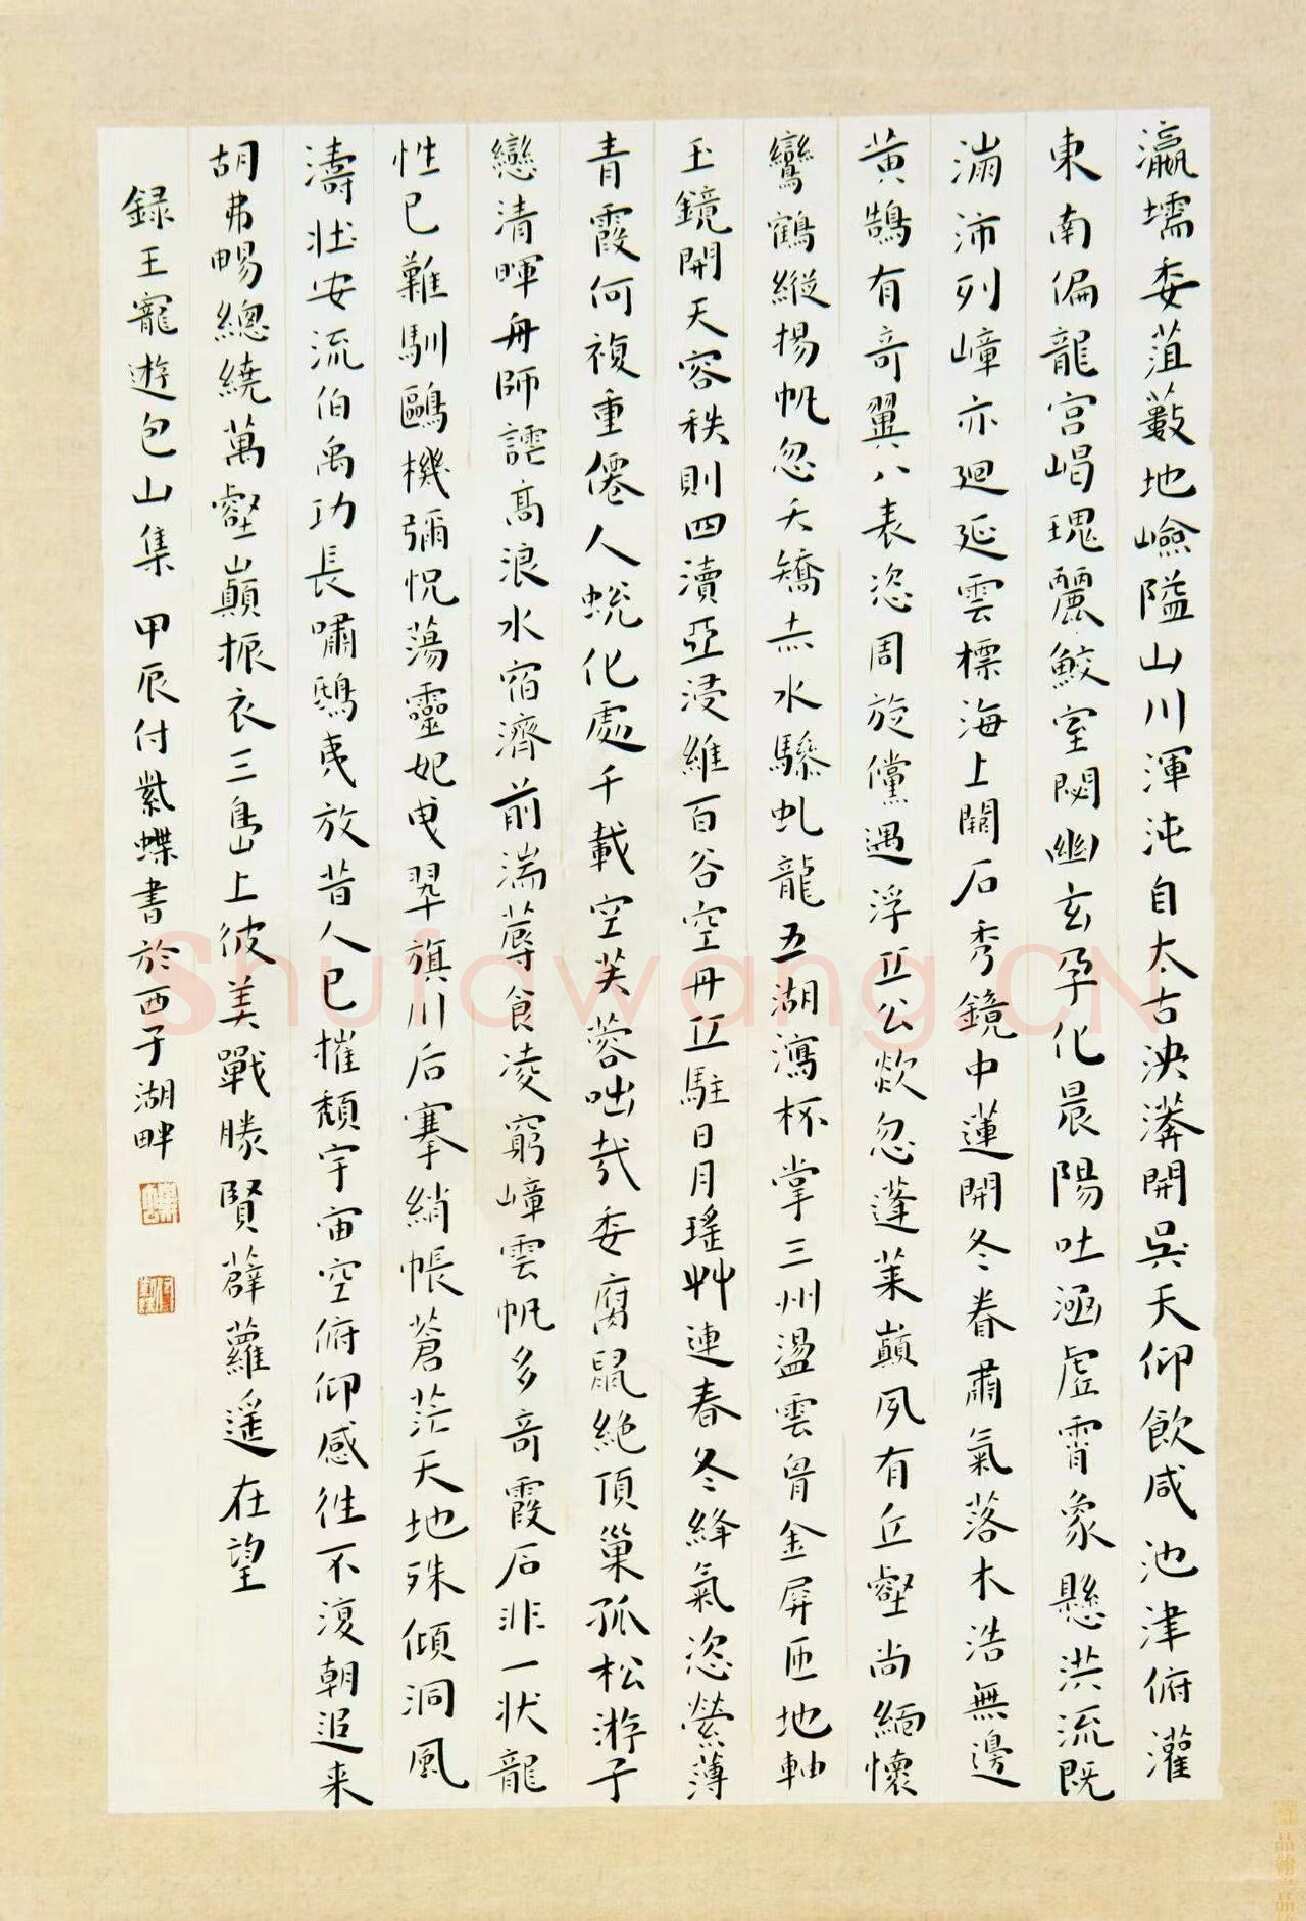 瀛壖委菹藪地嶮隘山川渾沌自太古泱漭開吳天仰飲咸池津俯灌
東南偏龍宮崵瑰麗鮫室閟幽玄孕化晨陽吐涵虛霄象懸洪流既
滿沛列嶂亦迴延雲標海上關石秀鏡中蓮開冬眷肅氣落木浩無邊
黃鵠有奇翼八表恣周旋儻遇浮丘公欻忽蓬萊巔夙有丘壑尚緬懷
鸞鶴縱揚帆忽夭矯赤水驂虬龍五湖瀉杯掌三州盪雲胷金屏匝地軸
玉鏡開天容秩則四瀆亞浸維百谷空丹丘駐日月瑤艸連春冬絳氣恣縈薄
青霞何複重僊人蛻化處千載空芙蓉咄哉委腐鼠絕頂巢孤松游子
戀清暉舟師謔高浪水宿濟前湍蓐食凌窮嶂雲帆多奇霞石非一狀龍
性已難馴鷗機彌怳蕩靈妃曳翠旗川后搴綃帳蒼茫天地殊傾洞風
濤壯安流伯禹功長嘯鴟夷放昔人已摧頹宇宙空俯仰感往不復朝追來
胡弗暢總繞萬壑巔振衣三島上彼美戰勝賢薜蘿遥在望
録王寵遊包山集 甲辰付紫蝶書於西子湖畔
Shufawang.CN